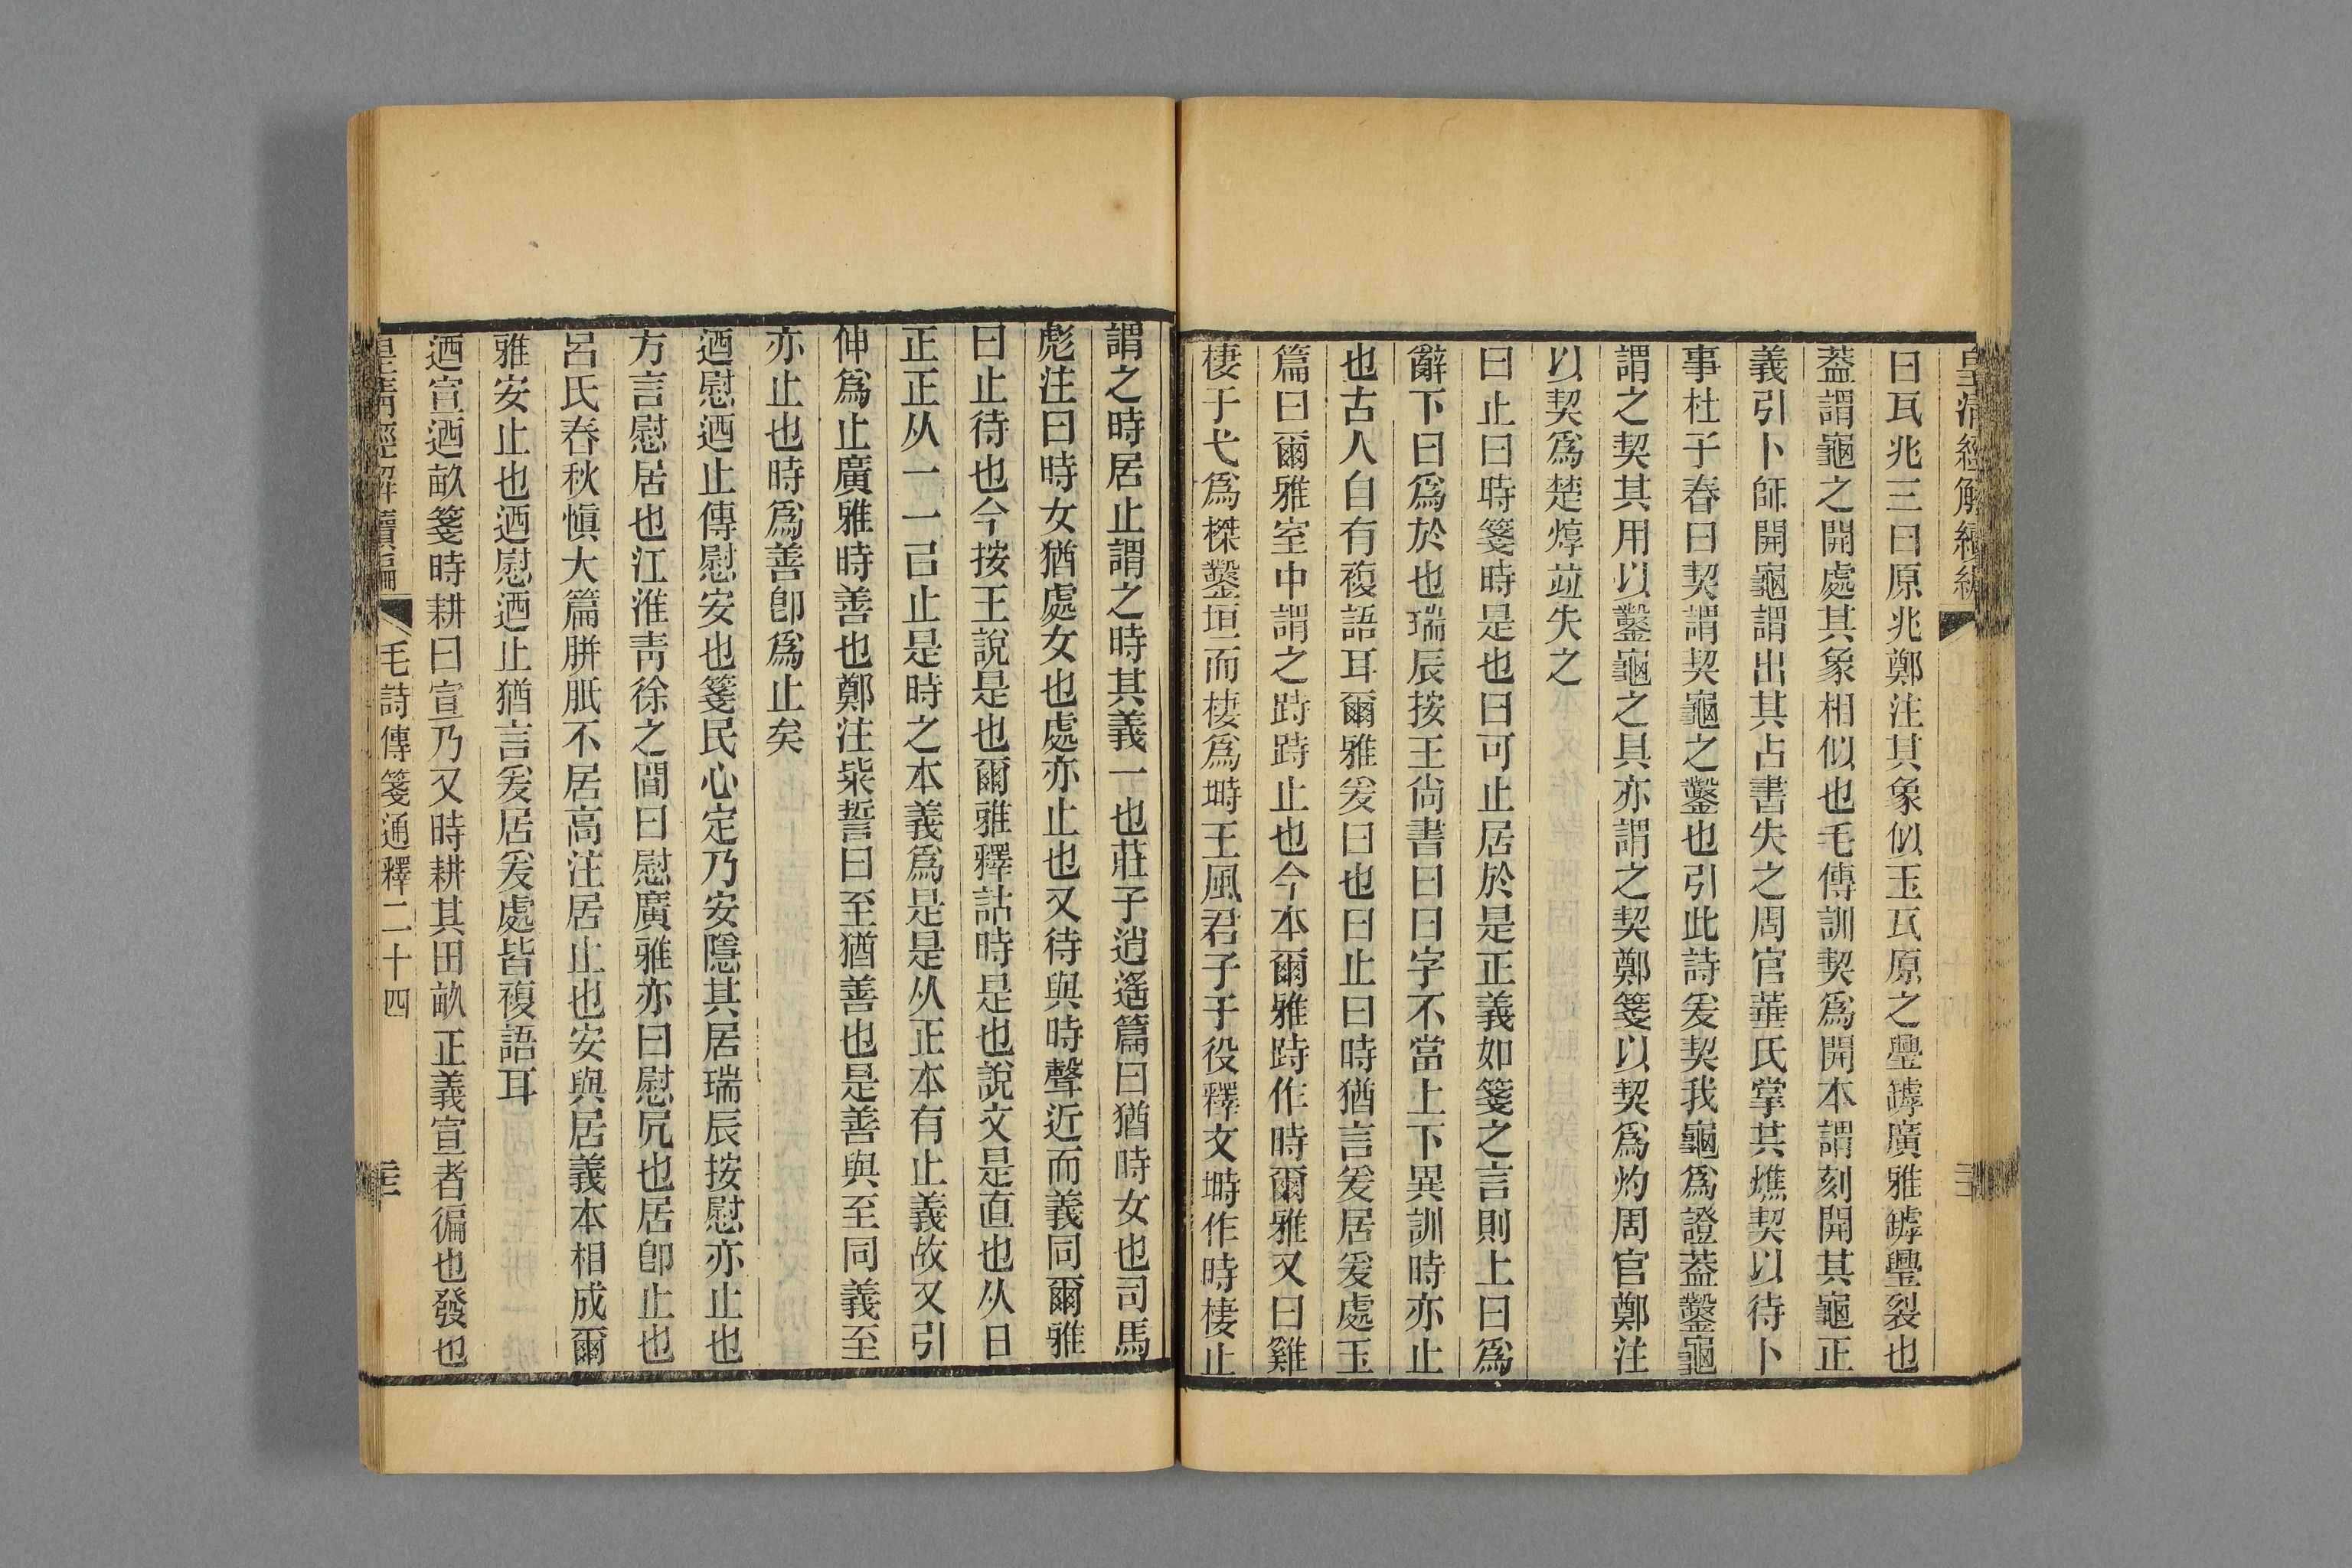 皇清經解續編
曰瓦兆三曰原兆鄭注其象似玉瓦原之璺罅廣雅罅璺裂也
葢謂龜之開處其象相似也毛傳訓契爲開本謂刻開其龜正
義引卜師開龜謂出其占書失之周官菙氏掌其燋契以待卜
事杜子春曰契謂契龜之鑿也引此詩爰契我龜爲證葢鑿龜
謂之契其用以鑿龜之具亦謂之契鄭箋以契爲灼周官鄭注
以契爲楚焞竝失之
曰止曰時箋時是也曰可止居於是正義如箋之言則上曰爲
辭下曰爲於也瑞辰按王尙書曰曰字不當上下異訓時亦止
也古人自有複語耳爾雅爰曰也曰止曰時猶言爰居爰處玉
篇曰爾雅室中謂之跱跱止也今本爾雅跱作時爾雅又曰雞
棲于弋爲榤鑿垣而棲爲塒王風君子于役釋文塒作時棲止
謂之時居止謂之時其義一也莊子逍遙篇曰猶時女也司馬
彪注曰時女猶處女也處亦止也又待與時聲近而義同爾雅
曰止待也今按王說是也爾雅釋詁時是也說文是直也从日
正正从一一㠯止是時之本義爲是是从正本有止義故又引
伸爲止廣雅時善也鄭注粊誓曰至猶善也是善與至同義至
亦止也時爲善卽爲止矣
迺慰迺止傳慰安也箋民心定乃安隱其居瑞辰按慰亦止也
方言慰居也江淮靑徐之閒曰慰廣雅亦曰慰凥也居卽止也
呂氏春秋愼大篇胼胝不居高注居止也安與居義本相成爾
雅安止也迺慰迺止猶言爰居爰處皆複語耳
迺宣迺畝箋時耕曰宣乃又時耕其田畝正義宣者徧也發也
皇淸經解續編 毛詩傳箋通釋二十四